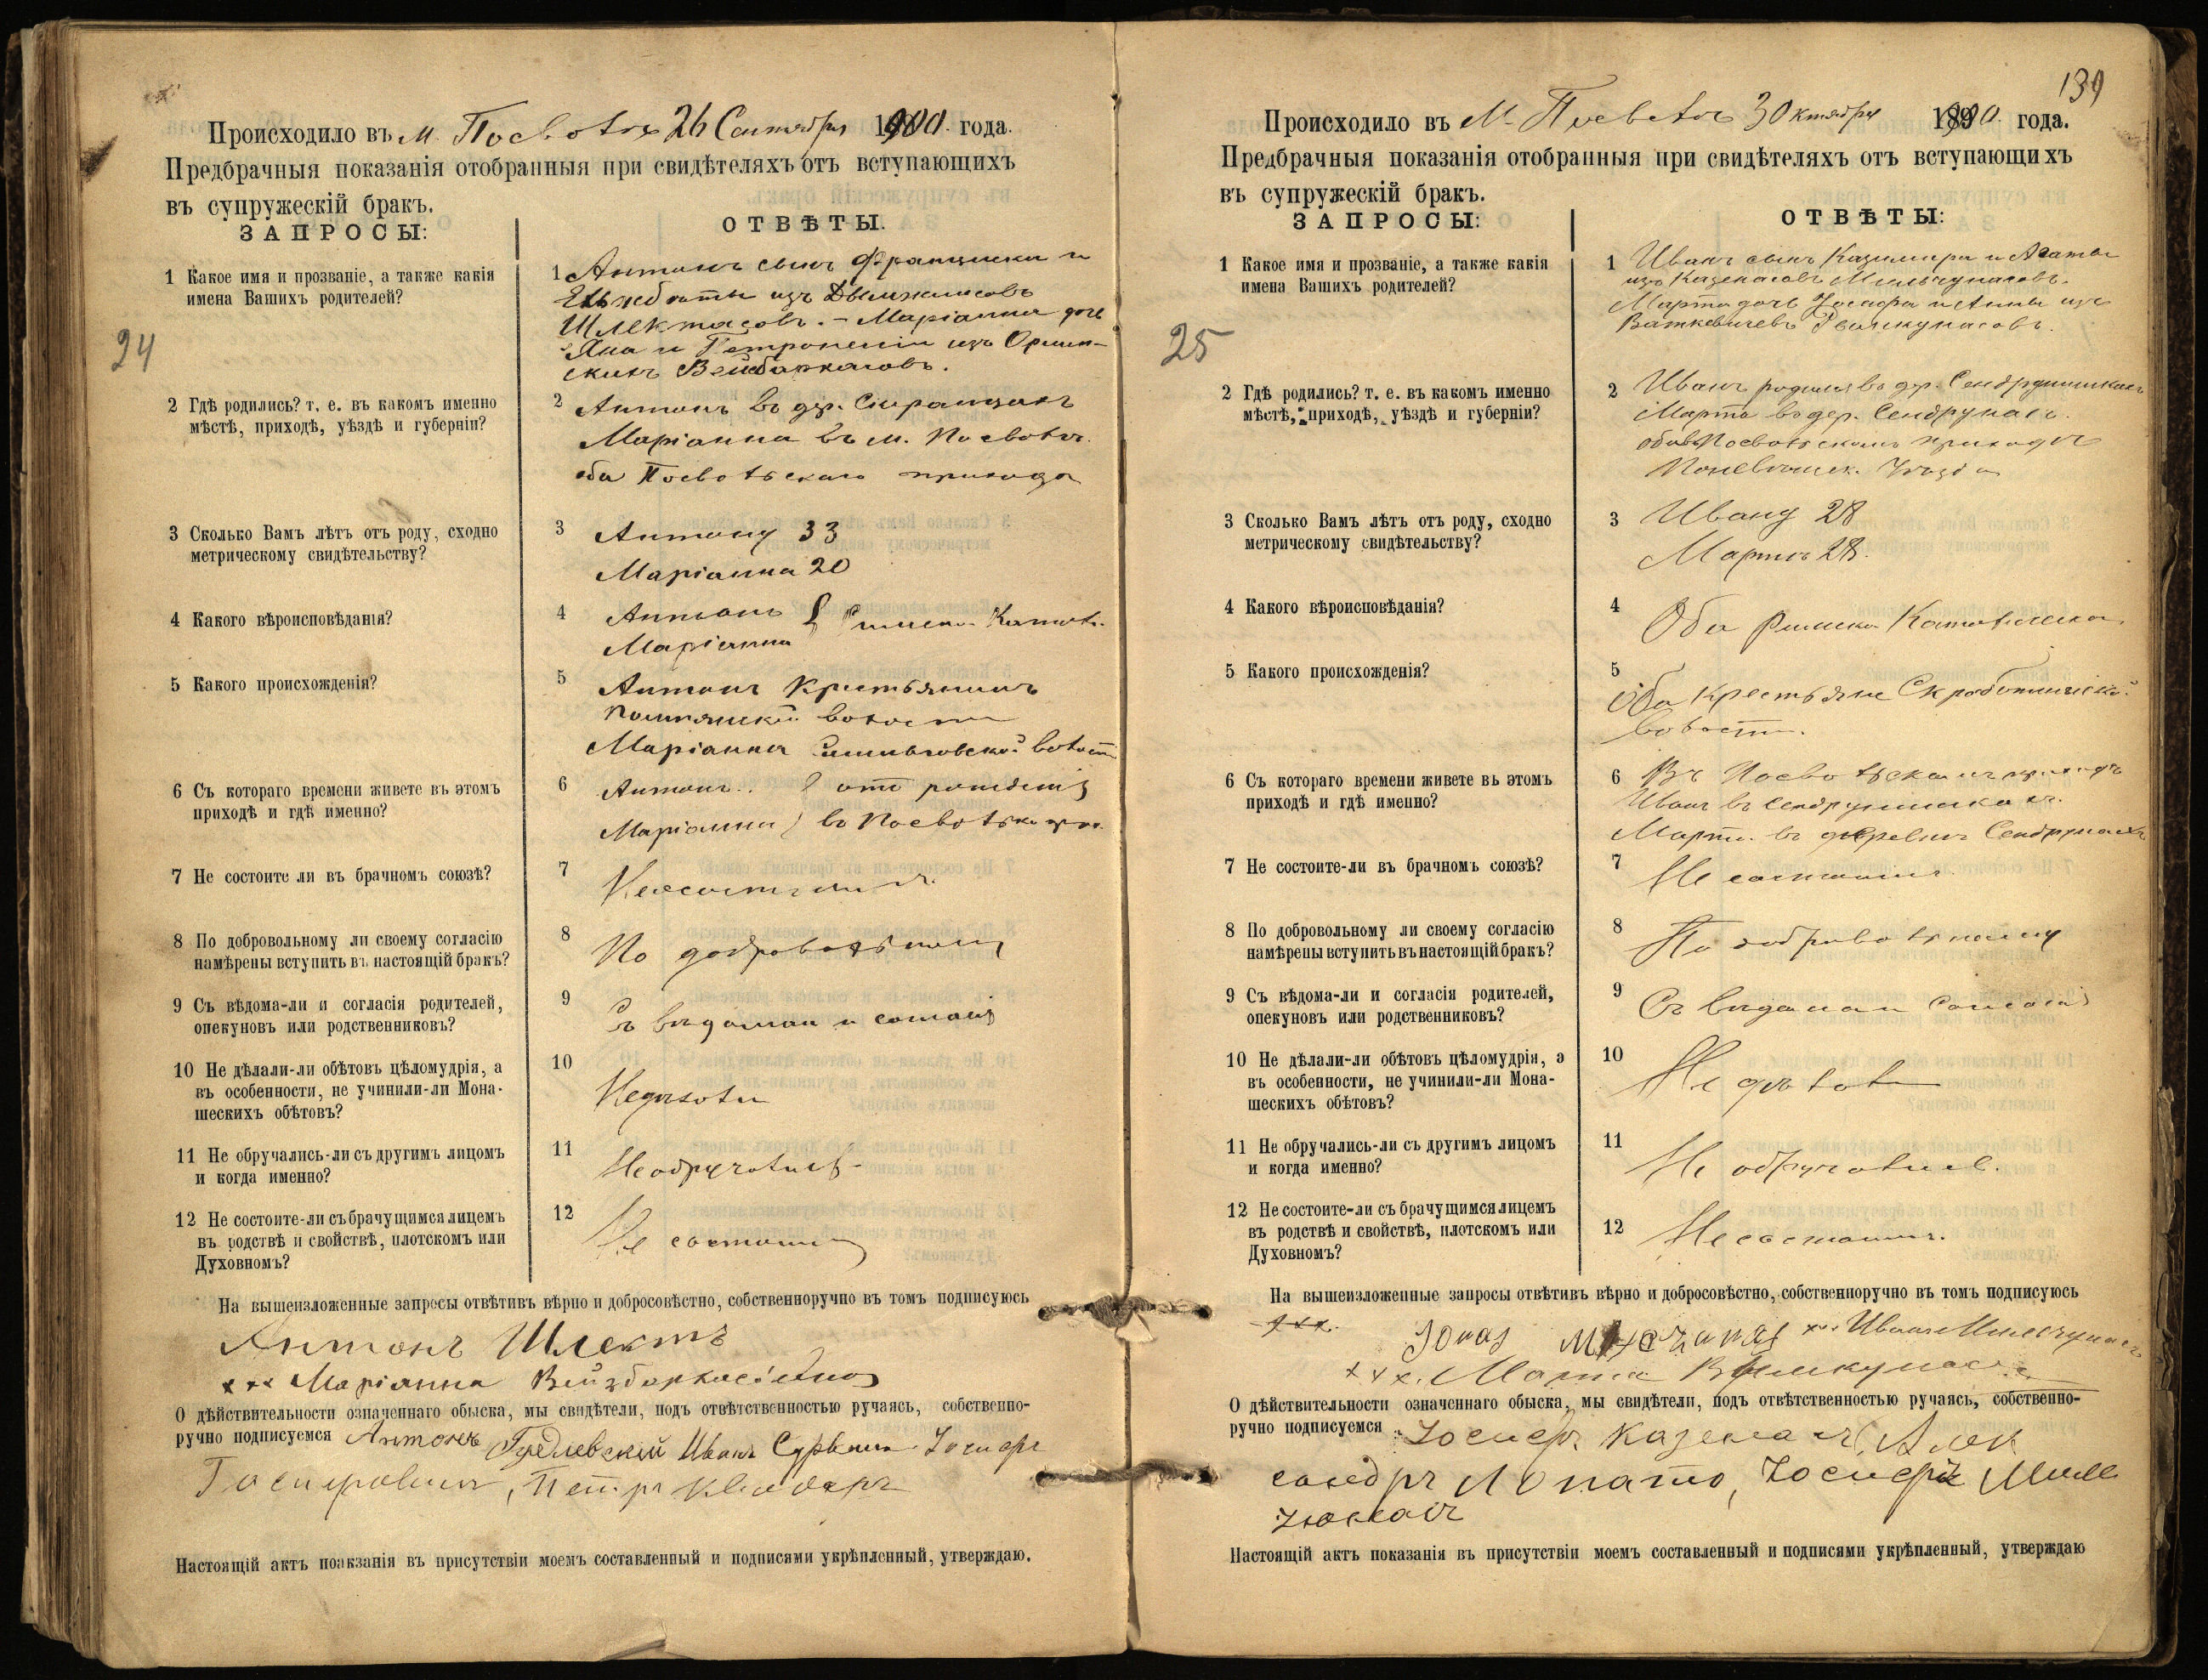 Происходило въ м. Посволь 26 Сентября 1900. года.
Предбрачныя показанія отобранныя при свидѣтеляхъ отъ вступающихъ
въ супружескій бракъ.
ЗАПРОСЫ:
ОТВѢТЫ.
1 Какое имя и прозваніе, а также какія
имена Вашихъ родителей?
1 Антонъ сынъ Францишка и
изъ
Маріанна дочь
Яна и Петронеліи изъ
24
2 Гдѣ родились? т. е. въ какомъ именно
мѣстѣ, приходѣ, уѣздѣ и губерніи?
2 Антонъ въ дер.
Маріанна въ м. Посволь.
оба Посвольскаго прихода
3 Сколько Вамъ лѣтъ отъ роду, сходно
метрическому свидѣтельству?
3 Антону 33
Маріанна 20
4 Какого вѣроисповѣданія?
4 Антонъ Римско Катол.
Маріанна
5 Какого происхожденія?
5 Антонъ Крестьянинъ
волости
Маріанна волости
6 Съ котораго времени живете въ этомъ
приходѣ и гдѣ именно?
6 Антонъ отъ рожденія
Маріанна въ Посвольско
7 Не состоите ли въ брачномъ союзѣ?
7 Несостоимъ.
8 По добровольному ли своему согласію
намѣрены вступить въ настоящій бракъ?
8 По добровольному
9 Съ вѣдома-ли и согласія родителей,
опекуновъ или родственниковъ?
9 Съ вѣдома и согласія
10 Не дѣлали-ли обѣтовъ цѣломудрія, а
въ особенности, не учинили-ли Мона-
шескихъ обѣтовъ?
10 Недѣлали
11 Не обручались-ли съ другимъ лицомъ
и когда именно?
11 Необручались
12 Не состоите-ли съ брачущимся лицемъ
въ родствѣ и свойствѣ, плотскомъ или
Духовномъ?
12 Не состоимъ
На вышеизложенные запросы отвѣтивъ вѣрно и добросовѣстно, собственноручно въ томъ подписуюсь
Антонъ Шлектъ
xxx Маріянна
О дѣйствительности означеннаго обыска, мы свидѣтели, подъ отвѣтственностью ручаясь, собственно-
ручно подписуемся Антонъ Гудлевскій Иванъ Іосифъ
Петръ
Настоящій актъ поакзанія въ присутствіи моемъ составленный и подписями укрѣпленный, утверждаю.
139
Происходило въ М. Посволь 3 Октября 1900. года.
Предбрачныя показанія отобранныя при свидѣтеляхъ отъ вступающихъ
въ супружескій бракъ.
ЗАПРОСЫ:
ОТВѢТЫ:
1 Какое имя и прозваніе, а также какія
имена Вашихъ родителей?
1 Иванъ сынъ Казимира и Агаты
изъ Казенасовъ
Марта дочь Іосифа и Анны изъ
Ваткевичевъ
25
2 Гдѣ родились? т. е. въ какомъ именно
мѣстѣ, приходѣ, уѣздѣ и губерніи?
2 Иванъ родился въ дер.
Марта въ дер.
Посвольскомъ приходѣ
Поневѣжск. Уѣзда
3 Сколько Вамъ лѣтъ отъ роду, сходно
метрическому свидѣтельству?
3 Ивану 28
Мартѣ 28.
4 Какого вѣроисповѣданія?
4 Оба Римско Католическа.
5 Какого происхожденія?
5 Оба крестьяне
волости.
6 Съ котораго времени живете въ этомъ
приходѣ и гдѣ именно?
6 Въ Посвольскомъ приходѣ
Иванъ въ
Марта въ деревнѣ
7 Не состоите-ли въ брачномъ союзѣ?
7 Не состоимъ.
8 По добровольному ли своему согласію
намѣрены вступить въ настоящій бракъ?
8 По добровольному
9 Съ вѣдома-ли и согласія родителей,
опекуновъ или родственниковъ?
9 Съ вѣдома и согласія
10 Не дѣлали-ли обѣтовъ цѣломудрія, а
въ особенности, не учинили-ли Мона-
шескихъ обѣтовъ?
10 Не дѣлали
11 Не обручались-ли съ другимъ лицомъ
и когда именно?
11 Не обручались.
12 Не состоите-ли съ брачущимся лицемъ
въ родствѣ и свойствѣ, плотскомъ или
Духовномъ?
12 Не состоимъ.
На вышеизложенные запросы отвѣтивъ вѣрно и добросовѣстно, собственноручно въ томъ подписуюсь
xxx. Иванъ
xxx. Марта
О дѣйствительности означеннаго обыска, мы свидѣтели, подъ отвѣтственностью ручаясь, собственно-
ручно подписуемся Іосифъ Казенасъ, Алек
сандръ Лопато, Іосифъ
Настоящій актъ показанія въ присутствіи моемъ составленный и подписями укрѣпленный, утверждаю